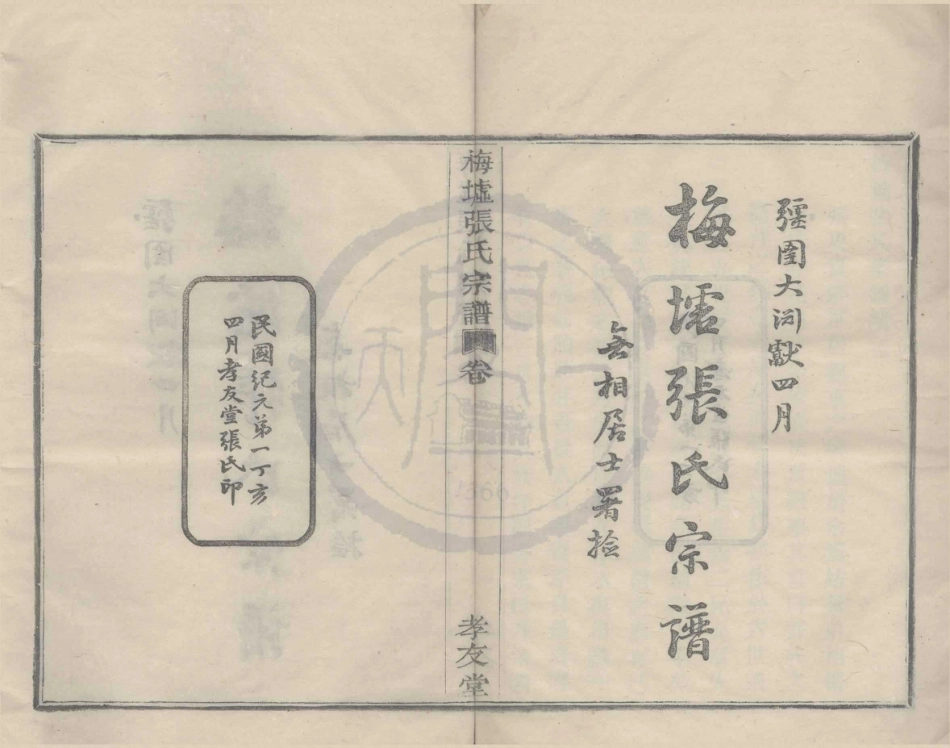 彊圉大渊獻四月
梅墟張氏宗譜
無相居士署檢
梅墟張氏宗譜
卷
孝友堂
民國紀元第一丁亥
四月孝友堂張氏印